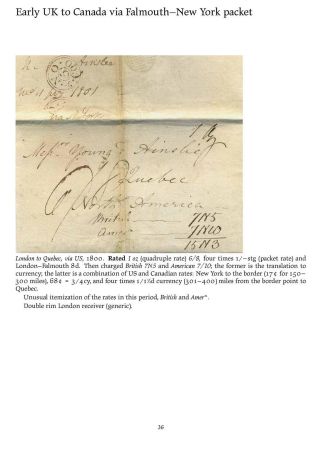 Early UK to Canada via Falmouth–New York packet
Ainslee
1801
Mess.rs Young & Ainslie
Quebec
North America
British 7N5
Amer 7N10
15N3
London to Quebec, via US, 1800. Rated 1 oz (quadruple rate) 6/8, four times 1/–stg (packet rate) and
London–Falmouth 8d. Then charged British 7N5 and American 7/10; the former is the translation to
currency; the latter is a combination of US and Canadian rates: New York to the border (17¢ for 150–
300 miles), 68¢ = 3/4cy, and four times 1/1½d currency (301–400) miles from the border point to
Quebec.
Unusual itemization of the rates in this period, British and Amerⁿ.
Double rim London receiver (generic).
36